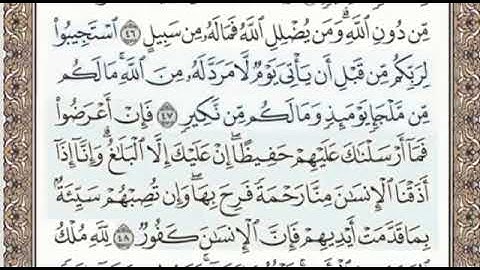 مِّن دُونِ ٱللَّهِۗ وَمَن يُضۡلِلِ ٱللَّهُ فَمَا لَهُۥ مِن سَبِيلٍ ٤٦ ٱسۡتَجِيبُواْ
لِرَبِّكُم مِّن قَبۡلِ أَن يَأۡتِيَ يَوۡمٞ لَّا مَرَدَّ لَهُۥ مِنَ ٱللَّهِۚ مَا لَكُم
مِّن مَّلۡجَإٖ يَوۡمَئِذٖ وَمَا لَكُم مِّن نَّكِيرٖ ٤٧ فَإِنۡ أَعۡرَضُواْ
فَمَآ أَرۡسَلۡنَٰكَ عَلَيۡهِمۡ حَفِيظًاۖ إِنۡ عَلَيۡكَ إِلَّا ٱلۡبَلَٰغُۗ وَإِنَّآ إِذَآ
أَذَقۡنَا ٱلۡإِنسَٰنَ مِنَّا رَحۡمَةٗ فَرِحَ بِهَاۖ وَإِن تُصِبۡهُمۡ سَيِّئَةُۢ
بِمَا قَدَّمَتۡ أَيۡدِيهِمۡ فَإِنَّ ٱلۡإِنسَٰنَ كَفُورٞ ٤٨ لِّلَّهِ مُلۡكُ